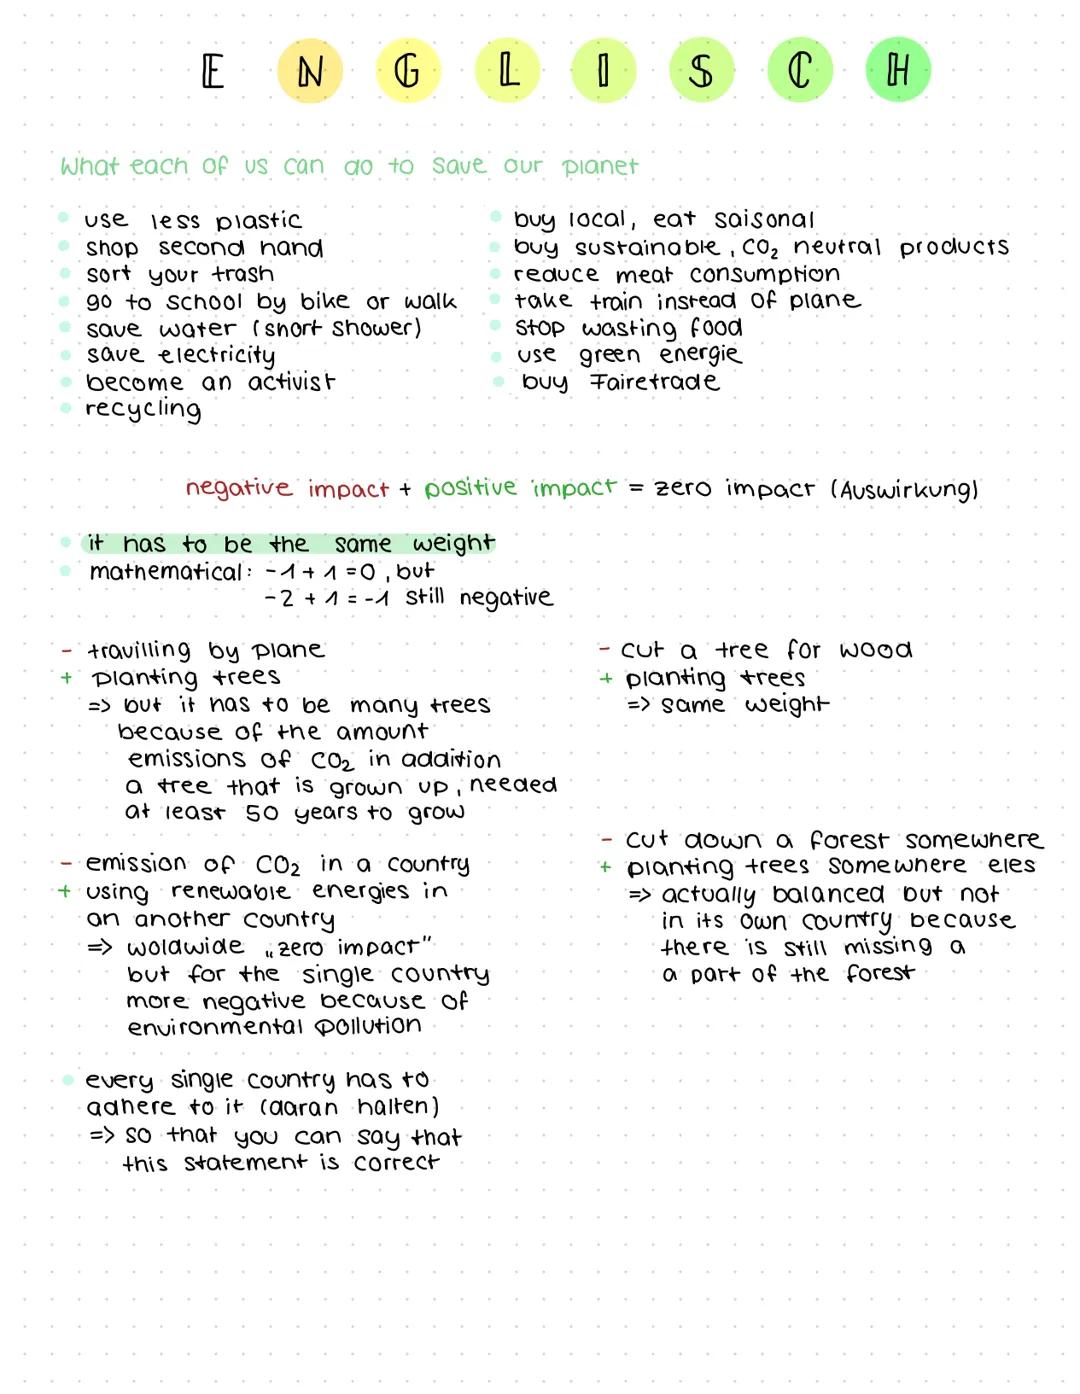 ENGLISCH
What each of us can do to save our planet
use less plastic
shop second hand
sort your trash
go to school by bike or walk
save water (short shower)
save electricity
become an activist
recycling
buy local, eat saisonal
buy sustainable, CO₂ neutral products
reduce meat consumption
take train instead of plane
stop wasting food
use green energie
buy Fairetrade
negative impact + positive impact = zero impact (Auswirkung)
it has to be the same weight
mathematical: -1 + 1 = 0, but
-2 + 1 = -1 still negative
- travilling by plane
+ planting trees
=> but it has to be many trees
because of the amount
emissions of CO₂ in addition
a tree that is grown up, needed
at least 50 years to grow
- cut a tree for wood
+ planting trees
=> same weight
- emission of CO₂ in a country
+ using renewable energies in
an another country
=> woldwide „zero impact"
but for the single country
more negative because of
environmental pollution
- cut down a forest somewhere
+ planting trees somewhere eles
=> actually balanced but not
in its own country because
there is still missing a
a part of the forest
every single country has to
adhere to it (daran halten)
=> so that you can say that
this statement is correct